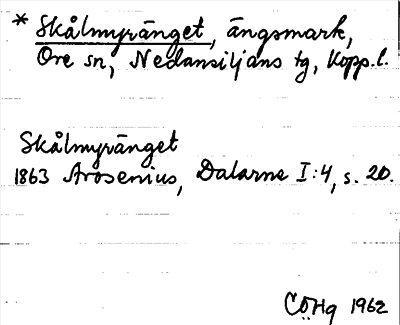 * Skålmyränget, ängsmark,
Ore sn, Nedansiljans tg, Kopp. l.
Skålmyränget
1863 Arosenius, Dalarne I:4, s. 20.
CÖHg 1962